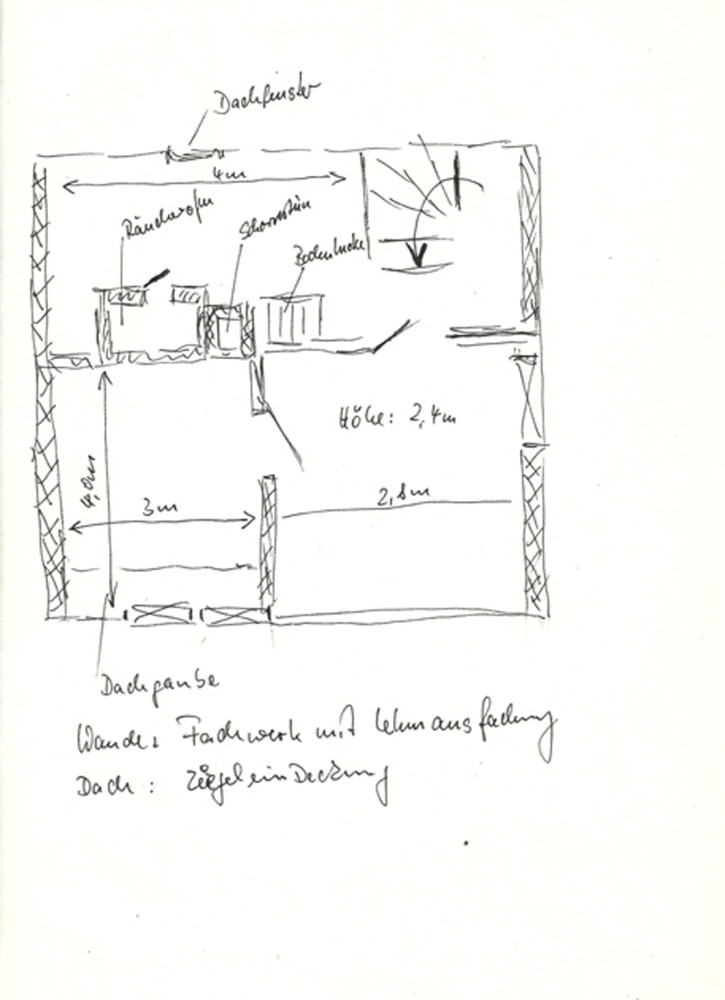 Dachfenster
4m
Räucherofen
Schornstein
Bodenluke
Höhe: 2,4m
4,0m
3m
2,8m
Dachgaube
Wände: Fachwerk mit Lehmausfachung
Dach: Ziegeleindeckung